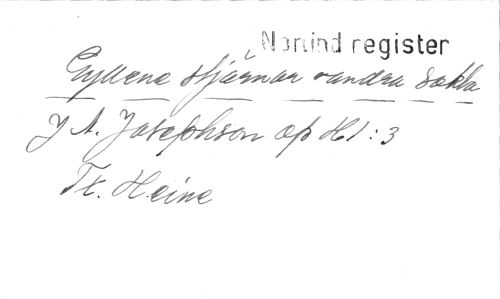 Norlind register
Gyllene stjärnor vandra sakta
J A. Josephson op 41:3
Tx. Heine